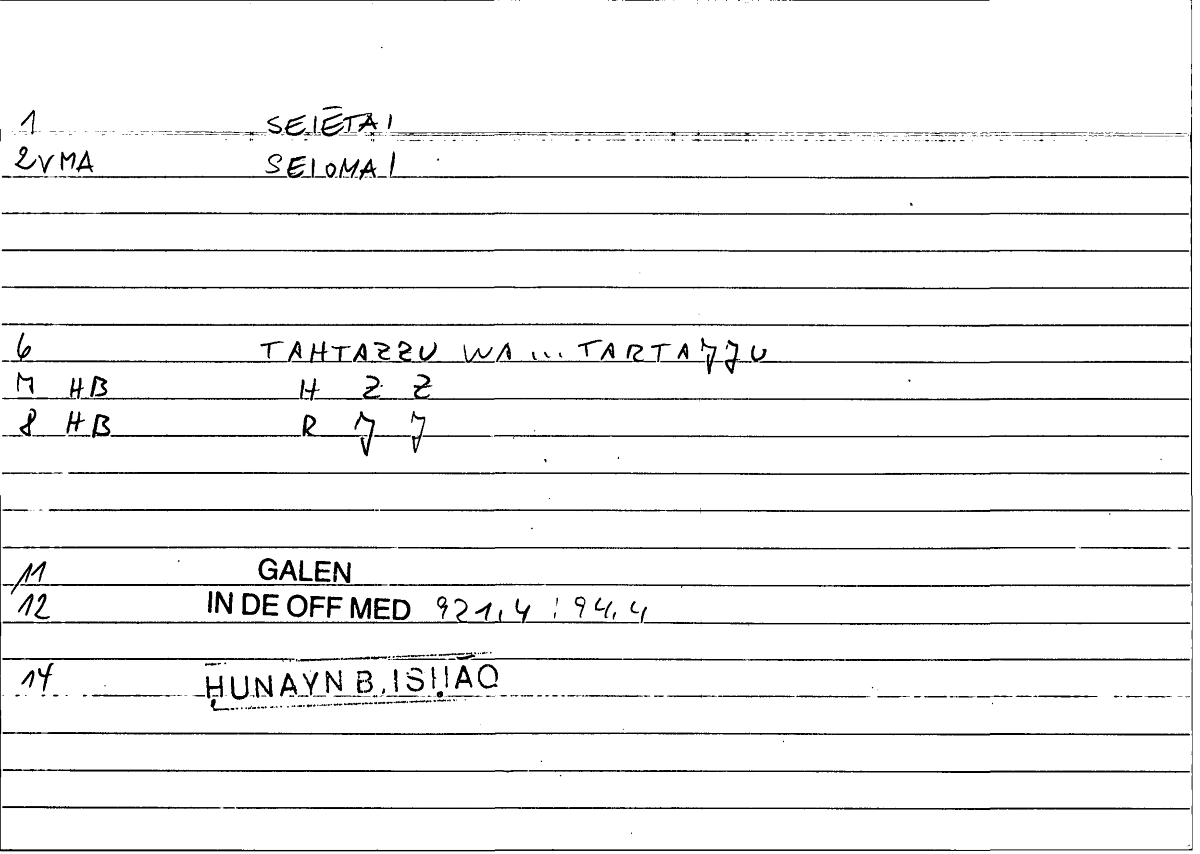 1 SEIĒTAI
2VMA SEIOMAI
6 TAHTAZZU WA ... TARTAǦǦU
7 HB H Z Z
8 HB R Ǧ Ǧ
11 GALEN
12 IN DE OFF MED 921,4 : 94,4
14 ḤUNAYN B. ISḤĀQ